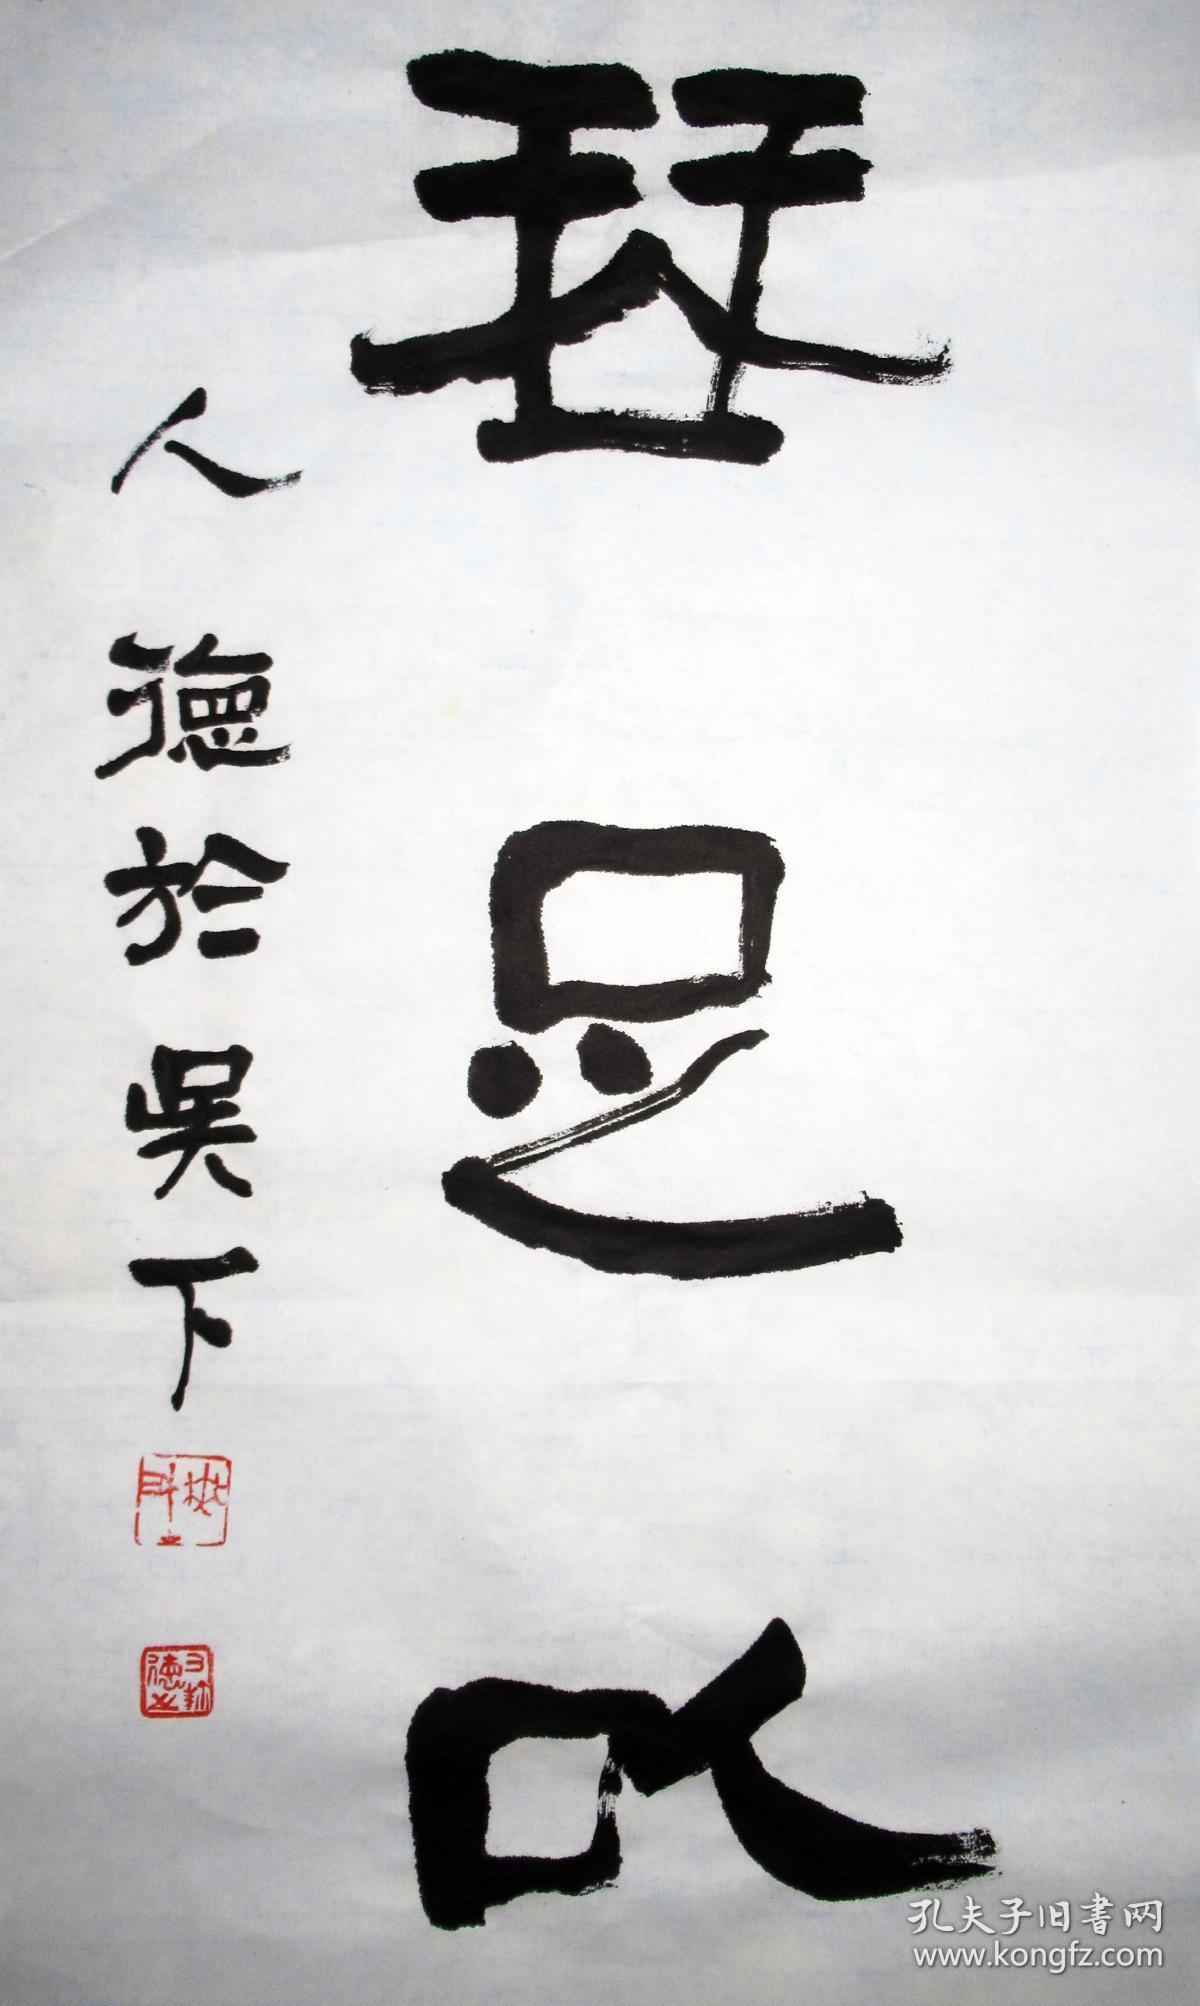 琴足以
人德於吳下
孔夫子旧书网
www.kongfz.com